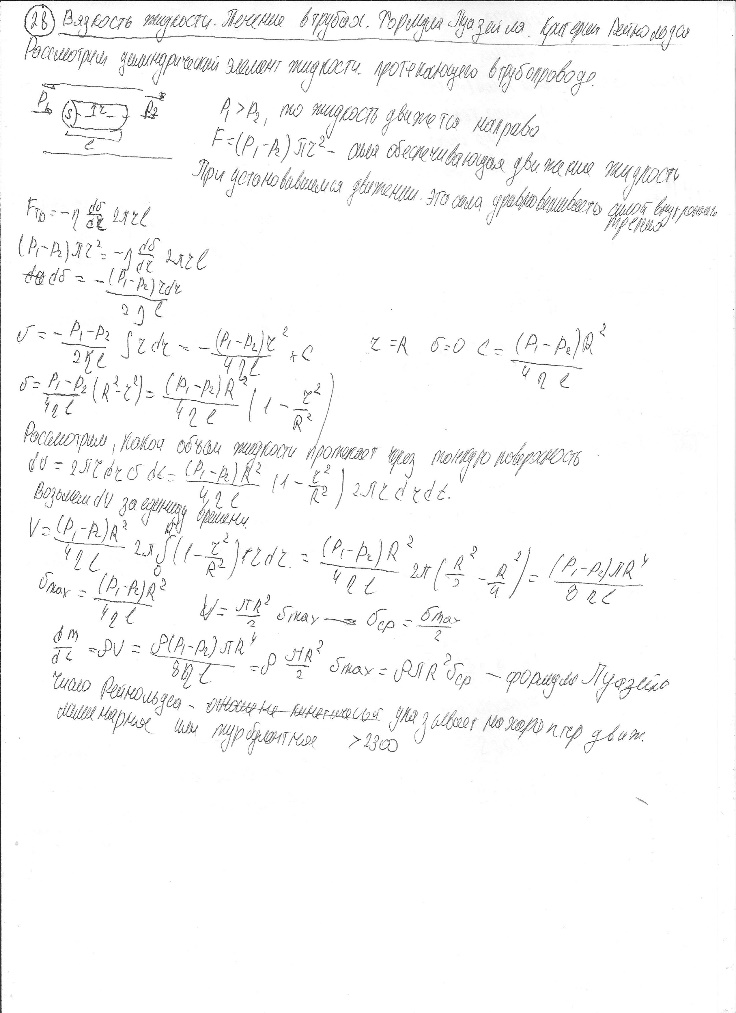 28 Вязкость жидкости. Течение в трубах. Формула Пуазейля. Критерий Рейнольдса
Рассмотрим цилиндрический элемент жидкости протекающего в трубопроводе.
P₁ S r P₂
l
P₁ > P₂, то жидкость движется направо
F = (P₁-P₂)πr² - сила обеспечивающая движение жидкости
При установившемся движении эта сила уравновешивается силой внутреннего трения
Fтр = -η dσ/dr 2πrl
(P₁-P₂)πr² = -η dσ/dr 2πrl
dσ = -(P₁-P₂)rdr / 2ηl
σ = -P₁-P₂ / 2ηl ∫rdr = -(P₁-P₂)r² / 4ηl + C r = R σ=0 C = (P₁-P₂)R² / 4ηl
σ = P₁-P₂ / 4ηl (R²-r²) = (P₁-P₂)R² / 4ηl (1 - r²/R²)
Рассмотрим, какой объем жидкости протекает через тонкую поверхность
dV = 2πrdrσdt = (P₁-P₂)R² / 4ηl (1 - r²/R²) 2πrdrdt.
Возьмем dV за единицу времени
V = (P₁-P₂)R² / 4ηl 2π ∫(1 - r²/R²) rdr = (P₁-P₂)R² / 4ηl 2π(R²/2 - R²/4) = (P₁-P₂)πR⁴ / 8ηl
σmax = (P₁-P₂)R² / 4ηl V = πR²/2 σmax — σср = σmax/2
dm/dt = ρV = ρ(P₁-P₂)πR⁴ / 8ηl = ρ πR²/2 σmax = ρπR²σср — формула Пуазейля
Число Рейнольдса - указывает на характер движ.
ламинарное или турбулентное >2300